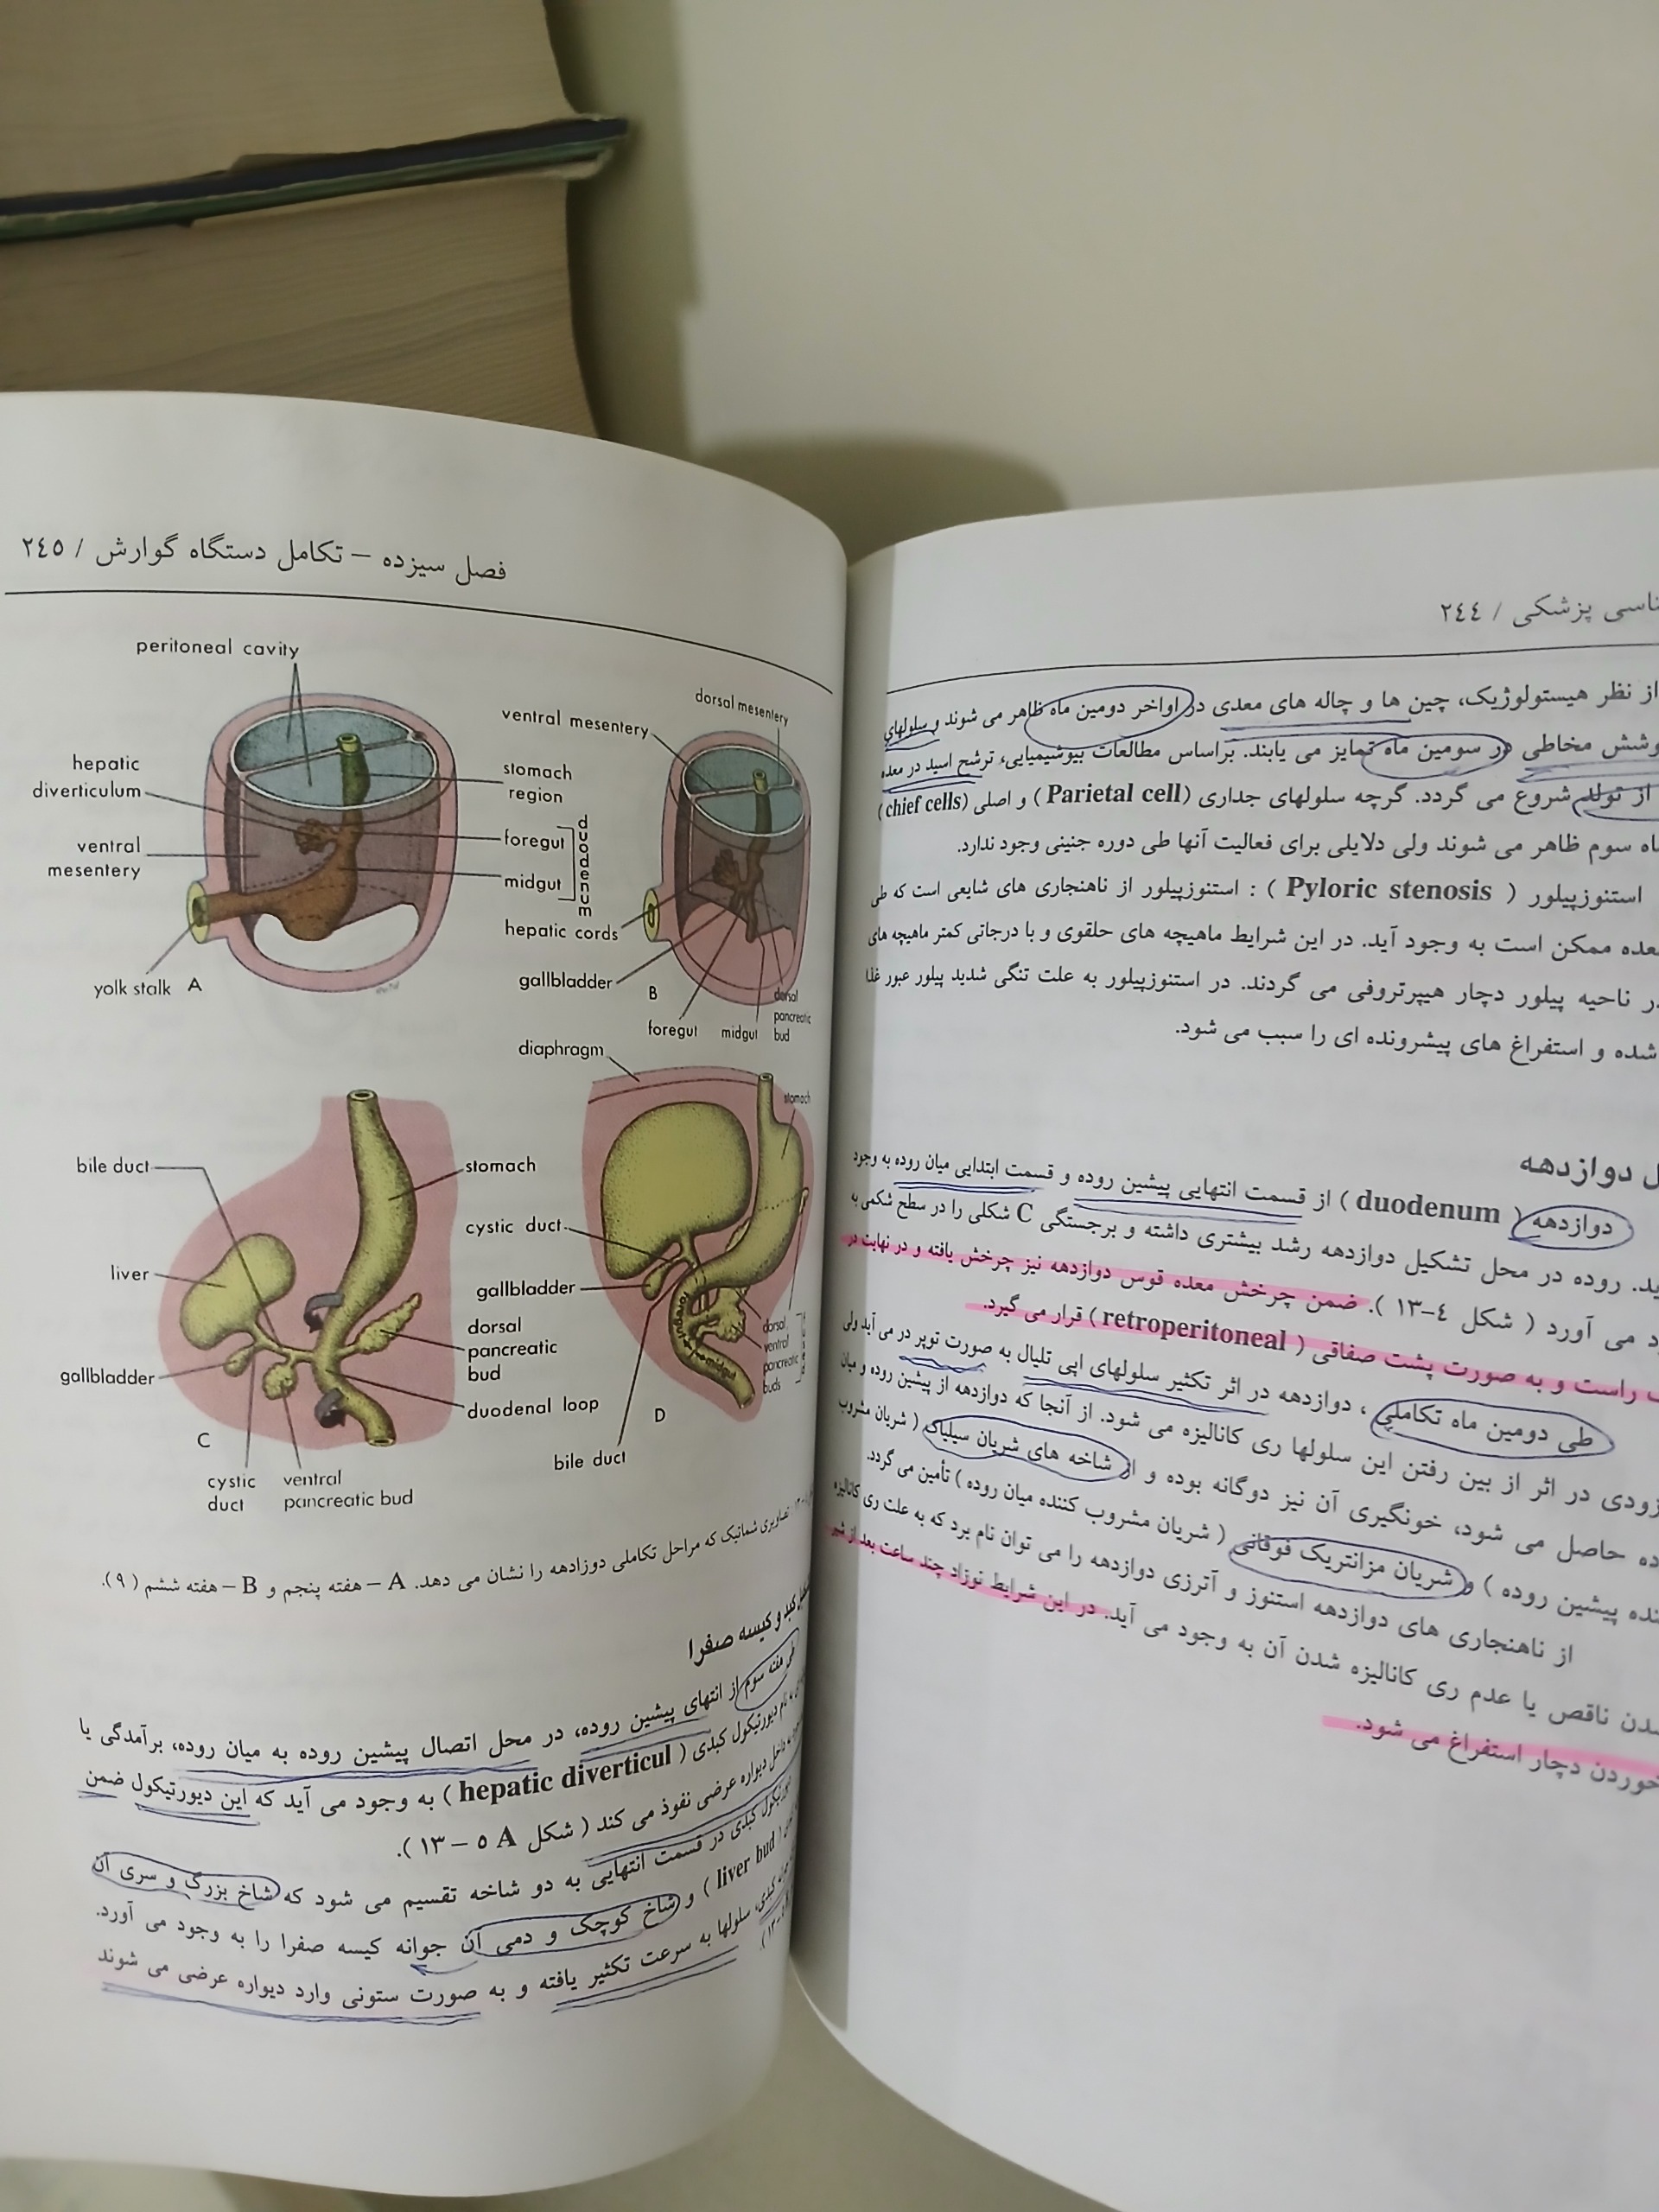 ناسی پزشکی / ٢٤٤
از نظر هیستولوژیک، چین ها و چاله های معدی در اواخر دومین ماه ظاهر می شوند و سلولهای
وشش مخاطی در سومین ماه تمایز می یابند. براساس مطالعات بیوشیمیایی، ترشح اسید در معده
از تولد شروع می گردد. گرچه سلولهای جداری (Parietal cell) و اصلی (chief cells)
اه سوم ظاهر می شوند ولی دلایلی برای فعالیت آنها طی دوره جنینی وجود ندارد.
استنوزپیلور ( Pyloric stenosis ) : استنوزپیلور از ناهنجاری های شایعی است که طی
عده ممکن است به وجود آید. در این شرایط ماهیچه های حلقوی و با درجاتی کمتر ماهیچه های
در ناحیه پیلور دچار هیپرتروفی می گردند. در استنوزپیلور به علت تنگی شدید پیلور عبور غذا
شده و استفراغ های پیشرونده ای را سبب می شود.
ل دوازدهه
دوازدهه ( duodenum ) از قسمت انتهایی پیشین روده و قسمت ابتدایی میان روده به وجود
ید. روده در محل تشکیل دوازدهه رشد بیشتری داشته و برجستگی C شکلی را در سطح شکمی به
د می آورد ( شکل ٤-١٣ ). ضمن چرخش معده قوس دوازدهه نیز چرخش یافته و در نهایت در
راست و به صورت پشت صفاقی ( retroperitoneal ) قرار می گیرد.
طی دومین ماه تکاملی ، دوازدهه در اثر تکثیر سلولهای اپی تلیال به صورت توپر در می آید ولی
زودی در اثر از بین رفتن این سلولها ری کانالیزه می شود. از آنجا که دوازدهه از پیشین روده و میان
ده حاصل می شود، خونگیری آن نیز دوگانه بوده و از شاخه های شریان سیلیاک ( شریان مشروب
نده پیشین روده ) و شریان مزانتریک فوقانی ( شریان مشروب کننده میان روده ) تأمین می گردد.
از ناهنجاری های دوازدهه استنوز و آترزی دوازدهه را می توان نام برد که به علت ری کانالیزه
شدن ناقص یا عدم ری کانالیزه شدن آن به وجود می آید. در این شرایط نوزاد چند ساعت بعد از شیر
خوردن دچار استفراغ می شود.
فصل سیزده – تکامل دستگاه گوارش / ٢٤٥
peritoneal cavity
hepatic
diverticulum
ventral
mesentery
yolk stalk
A
stomach
region
foregut
midgut
duodenum
ventral mesentery
dorsal mesentery
hepatic cords
gallbladder
B
foregut
midgut
dorsal
pancreatic
bud
bile duct
liver
gallbladder
C
cystic
duct
ventral
pancreatic bud
stomach
dorsal
pancreatic
bud
duodenal loop
diaphragm
stomach
cystic duct
gallbladder
foregut
midgut
dorsal
ventral
pancreatic
buds
D
bile duct
تصاویری شماتیک که مراحل تکاملی دوزادهه را نشان می دهد. A – هفته پنجم و B – هفته ششم ( ٩ ).
کبد و کیسه صفرا
طی هفته سوم از انتهای پیشین روده، در محل اتصال پیشین روده به میان روده، برآمدگی یا
به نام دیورتیکول کبدی ( hepatic diverticul ) به وجود می آید که این دیورتیکول ضمن
به داخل دیواره عرضی نفوذ می کند ( شکل A ٥ – ١٣ ).
دیورتیکول کبدی در قسمت انتهایی به دو شاخه تقسیم می شود که شاخ بزرگ و سری آن
( liver bud ) و شاخ کوچک و دمی آن جوانه کیسه صفرا را به وجود می آورد.
کبدی، سلولها به سرعت تکثیر یافته و به صورت ستونی وارد دیواره عرضی می شوند